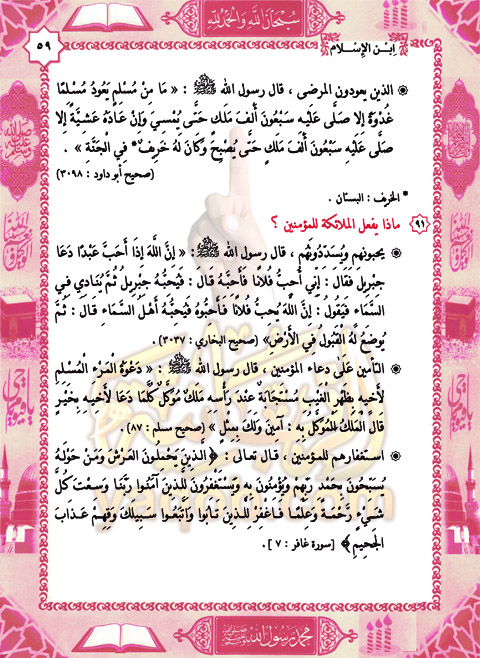 سُبْحَانَ اللَّه وَالْحَمْدُ لِلَّه
اِبْـن الإِسْـلَام
٥٩
الذين يعودون المرضى ، قال رسول الله ﷺ : « مَا مِنْ مُسْلِمٍ يَعُودُ مُسْلِمًا
غُدْوَةً إِلا صَلَّى عَلَيْهِ سَبْعُونَ أَلْفَ مَلَك حَتَّى يُمْسِيَ وَإِنْ عَادَهُ عَشِيَّةً إِلا
صَلَّى عَلَيْهِ سَبْعُونَ أَلْفَ مَلَكٍ حَتَّى يُصْبِحَ وَكَانَ لَهُ خَرِيفٌ* فِي الْجَنَّةِ » .
(صحيح أبو داود : ٣٠٩٨)
* الخَرِيف : البستان .
٩١ ماذا يفعل الملائكة للمؤمنين ؟
يحبونهم ويُسَدِّدُونَهُم ، قال رسول الله ﷺ : « إِنَّ اللَّهَ إِذَا أَحَبَّ عَبْدًا دَعَا
جِبْرِيلَ فَقَالَ : إِنِّي أُحِبُّ فُلَانًا فَأَحِبَّهُ قَالَ : فَيُحِبُّهُ جِبْرِيلُ ثُمَّ يُنَادِي فِي
السَّمَاءِ فَيَقُولُ : إِنَّ اللَّهَ يُحِبُّ فُلَانًا فَأَحِبُّوهُ فَيُحِبُّهُ أَهْلُ السَّمَاءِ قَالَ : ثُمَّ
يُوضَعُ لَهُ الْقَبُولُ فِي الْأَرْضِ» (صحيح البخاري : ٣٠٣٧) .
التأمين عَلَى دعاء المؤمنين ، قال رسول الله ﷺ : « دَعْوَةُ الْمَرْءِ الْمُسْلِمِ
لِأَخِيهِ بِظَهْرِ الْغَيْبِ مُسْتَجَابَةٌ عِنْدَ رَأْسِهِ مَلَكٌ مُوَكَّلٌ كُلَّمَا دَعَا لأَخِيهِ بِخَيْرٍ
قَالَ الْمَلَكُ الْمُوَكَّلُ بِهِ : آمِينَ وَلَكَ بِمِثْلٍ » (صحيح مسلم : ٨٧) .
استغفارهم للمؤمنين ، قال تعالى : ﴿ الَّذِينَ يَحْمِلُونَ الْعَرْشَ وَمَنْ حَوْلَهُ
يُسَبِّحُونَ بِحَمْدِ رَبِّهِمْ وَيُؤْمِنُونَ بِهِ وَيَسْتَغْفِرُونَ لِلَّذِينَ آمَنُوا رَبَّنَا وَسِعْتَ كُلَّ
شَيْءٍ رَّحْمَةً وَعِلْمًا فَاغْفِرْ لِلَّذِينَ تَابُوا وَاتَّبَعُوا سَبِيلَكَ وَقِهِمْ عَذَابَ
الْجَحِيمِ ﴾ [سورة غافر : ٧ ] .
محمد رسول الله ﷺ